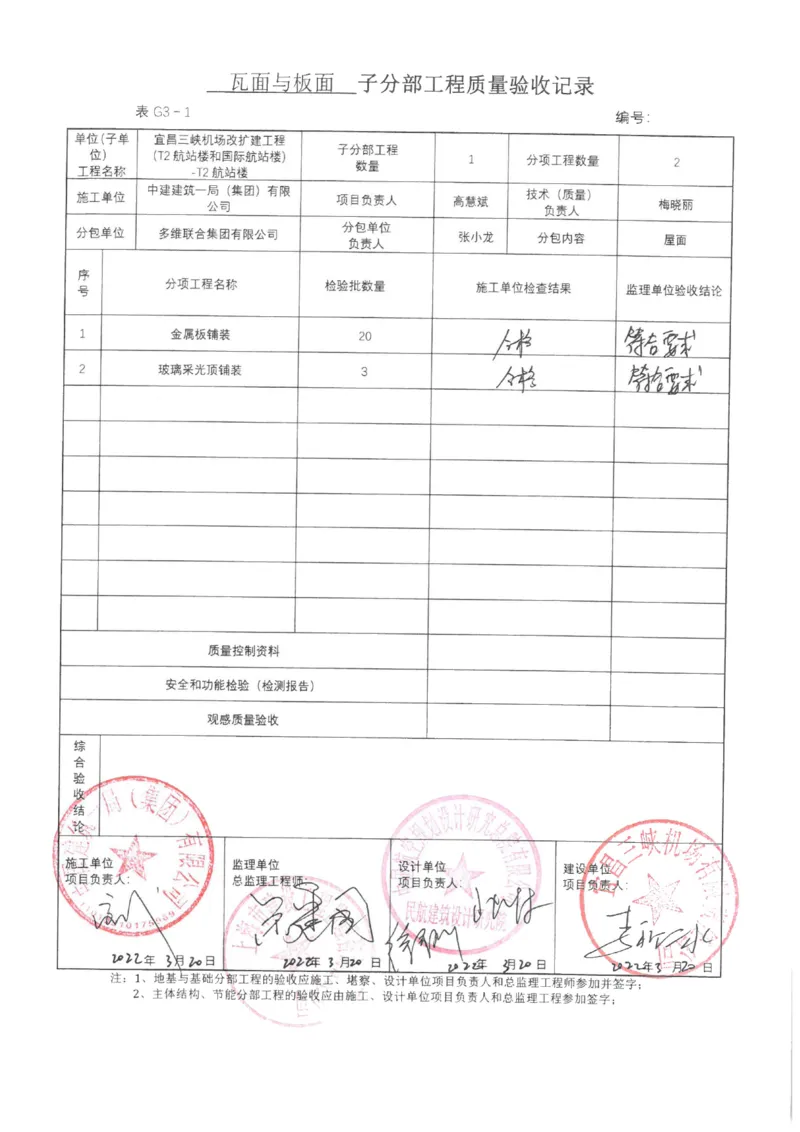 瓦面与板面 子分部工程质量验收记录
表 G3-1 编号：
单位(子单位)工程名称 宜昌三峡机场改扩建工程(T2航站楼和国际航站楼)-T2航站楼 子分部工程数量 1 分项工程数量 2
施工单位 中建建筑一局（集团）有限公司 项目负责人 高慧斌 技术（质量）负责人 梅晓丽
分包单位 多维联合集团有限公司 分包单位负责人 张小龙 分包内容 屋面
序号 分项工程名称 检验批数量 施工单位检查结果 监理单位验收结论
1 金属板铺装 20 合格 符合要求
2 玻璃采光顶铺装 3 合格 符合要求
质量控制资料
安全和功能检验（检测报告）
观感质量验收
综合验收结论
施工单位 监理单位 设计单位 建设单位
项目负责人： 总监理工程师： 项目负责人： 项目负责人：
2022年 3月20日 2022年 3月20日 2022年 3月20日 2022年3月20日
注：1、地基与基础分部工程的验收应施工、堪察、设计单位项目负责人和总监理工程师参加并签字；
2、主体结构、节能分部工程的验收应由施工、设计单位项目负责人和总监理工程参加签字；